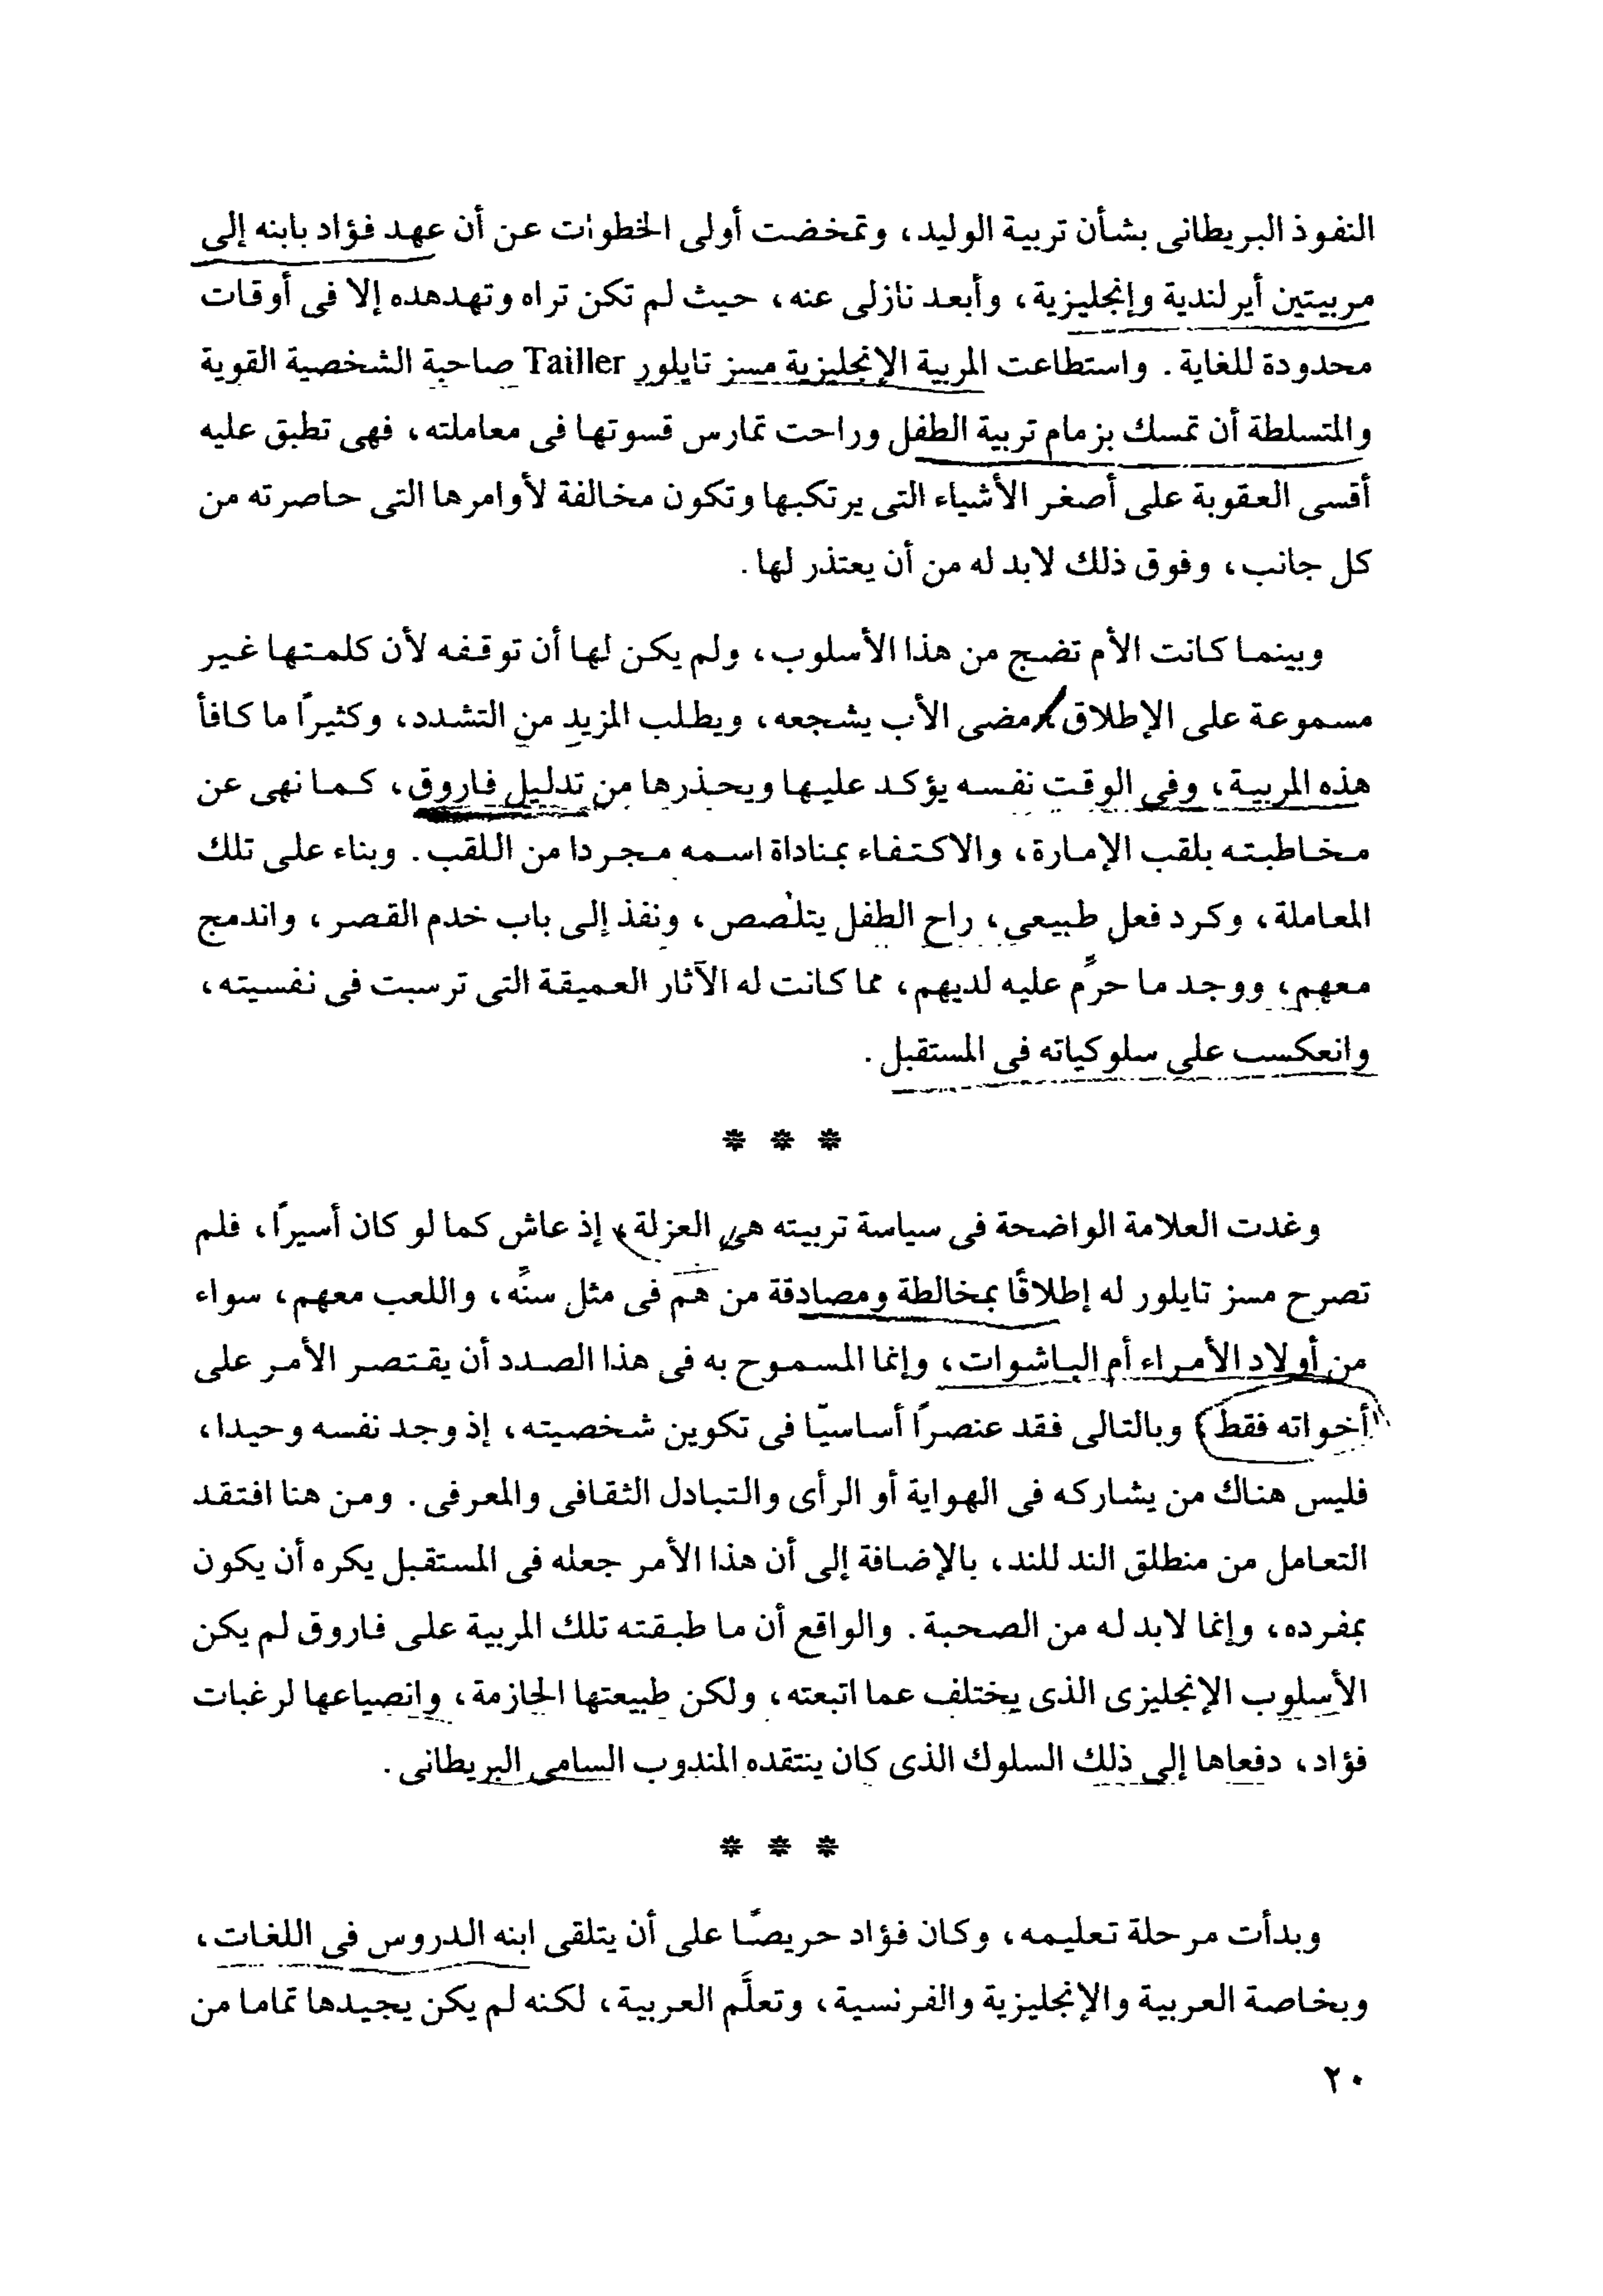 النفوذ البريطانى بشأن تربية الوليد، وتمخضت أولى الخطوات عن أن عهد فؤاد بابنه إلى
مربيتين أيرلندية وإنجليزية، وأبعد نازلى عنه، حيث لم تكن تراه وتهدهده إلا فى أوقات
محدودة للغاية. واستطاعت المربية الإنجليزية مسز تايلور Tailler صاحبة الشخصية القوية
والمتسلطة أن تمسك بزمام تربية الطفل وراحت تمارس قسوتها فى معاملته، فهى تطبق عليه
أقسى العقوبة على أصغر الأشياء التى يرتكبها وتكون مخالفة لأوامرها التى حاصرته من
كل جانب، وفوق ذلك لابد له من أن يعتذر لها.
وبينما كانت الأم تضج من هذا الأسلوب، ولم يكن لها أن توقفه لأن كلمتها غير
مسموعة على الإطلاق، مضى الأب يشجعه، ويطلب المزيد من التشدد، وكثيرًا ما كافأ
هذه المربية، وفى الوقت نفسه يؤكد عليها ويحذرها من تدليل فاروق، كما نهى عن
مخاطبته بلقب الإمارة، والاكتفاء بمناداة اسمه مجردا من اللقب. وبناء على تلك
المعاملة، وكرد فعل طبيعى، راح الطفل يتلصص، ونفذ إلى باب خدم القصر، واندمج
معهم، ووجد ما حرِّم عليه لديهم، مما كانت له الآثار العميقة التى ترسبت فى نفسيته،
وانعكست على سلوكياته فى المستقبل.
* * *
وغدت العلامة الواضحة فى سياسة تربيته هى العزلة، إذ عاش كما لو كان أسيرًا، فلم
تصرح مسز تايلور له إطلاقًا بمخالطة ومصادقة من هم فى مثل سنِّه، واللعب معهم، سواء
من أولاد الأمراء أم الباشوات، وإنما المسموح به فى هذا الصدد أن يقتصر الأمر على
أخواته فقط، وبالتالى فقد عنصرًا أساسيّا فى تكوين شخصيته، إذ وجد نفسه وحيدا،
فليس هناك من يشاركه فى الهواية أو الرأى والتبادل الثقافى والمعرفى. ومن هنا افتقد
التعامل من منطلق الند للند، بالإضافة إلى أن هذا الأمر جعله فى المستقبل يكره أن يكون
بمفرده، وإنما لابد له من الصحبة. والواقع أن ما طبقته تلك المربية على فاروق لم يكن
الأسلوب الإنجليزى الذى يختلف عما اتبعته، ولكن طبيعتها الحازمة، وانصياعها لرغبات
فؤاد، دفعاها إلى ذلك السلوك الذى كان ينتقده المندوب السامى البريطانى.
* * *
وبدأت مرحلة تعليمه، وكان فؤاد حريصًا على أن يتلقى ابنه الدروس فى اللغات،
وبخاصة العربية والإنجليزية والفرنسية، وتعلَّم العربية، لكنه لم يكن يجيدها تماما من
٢٠